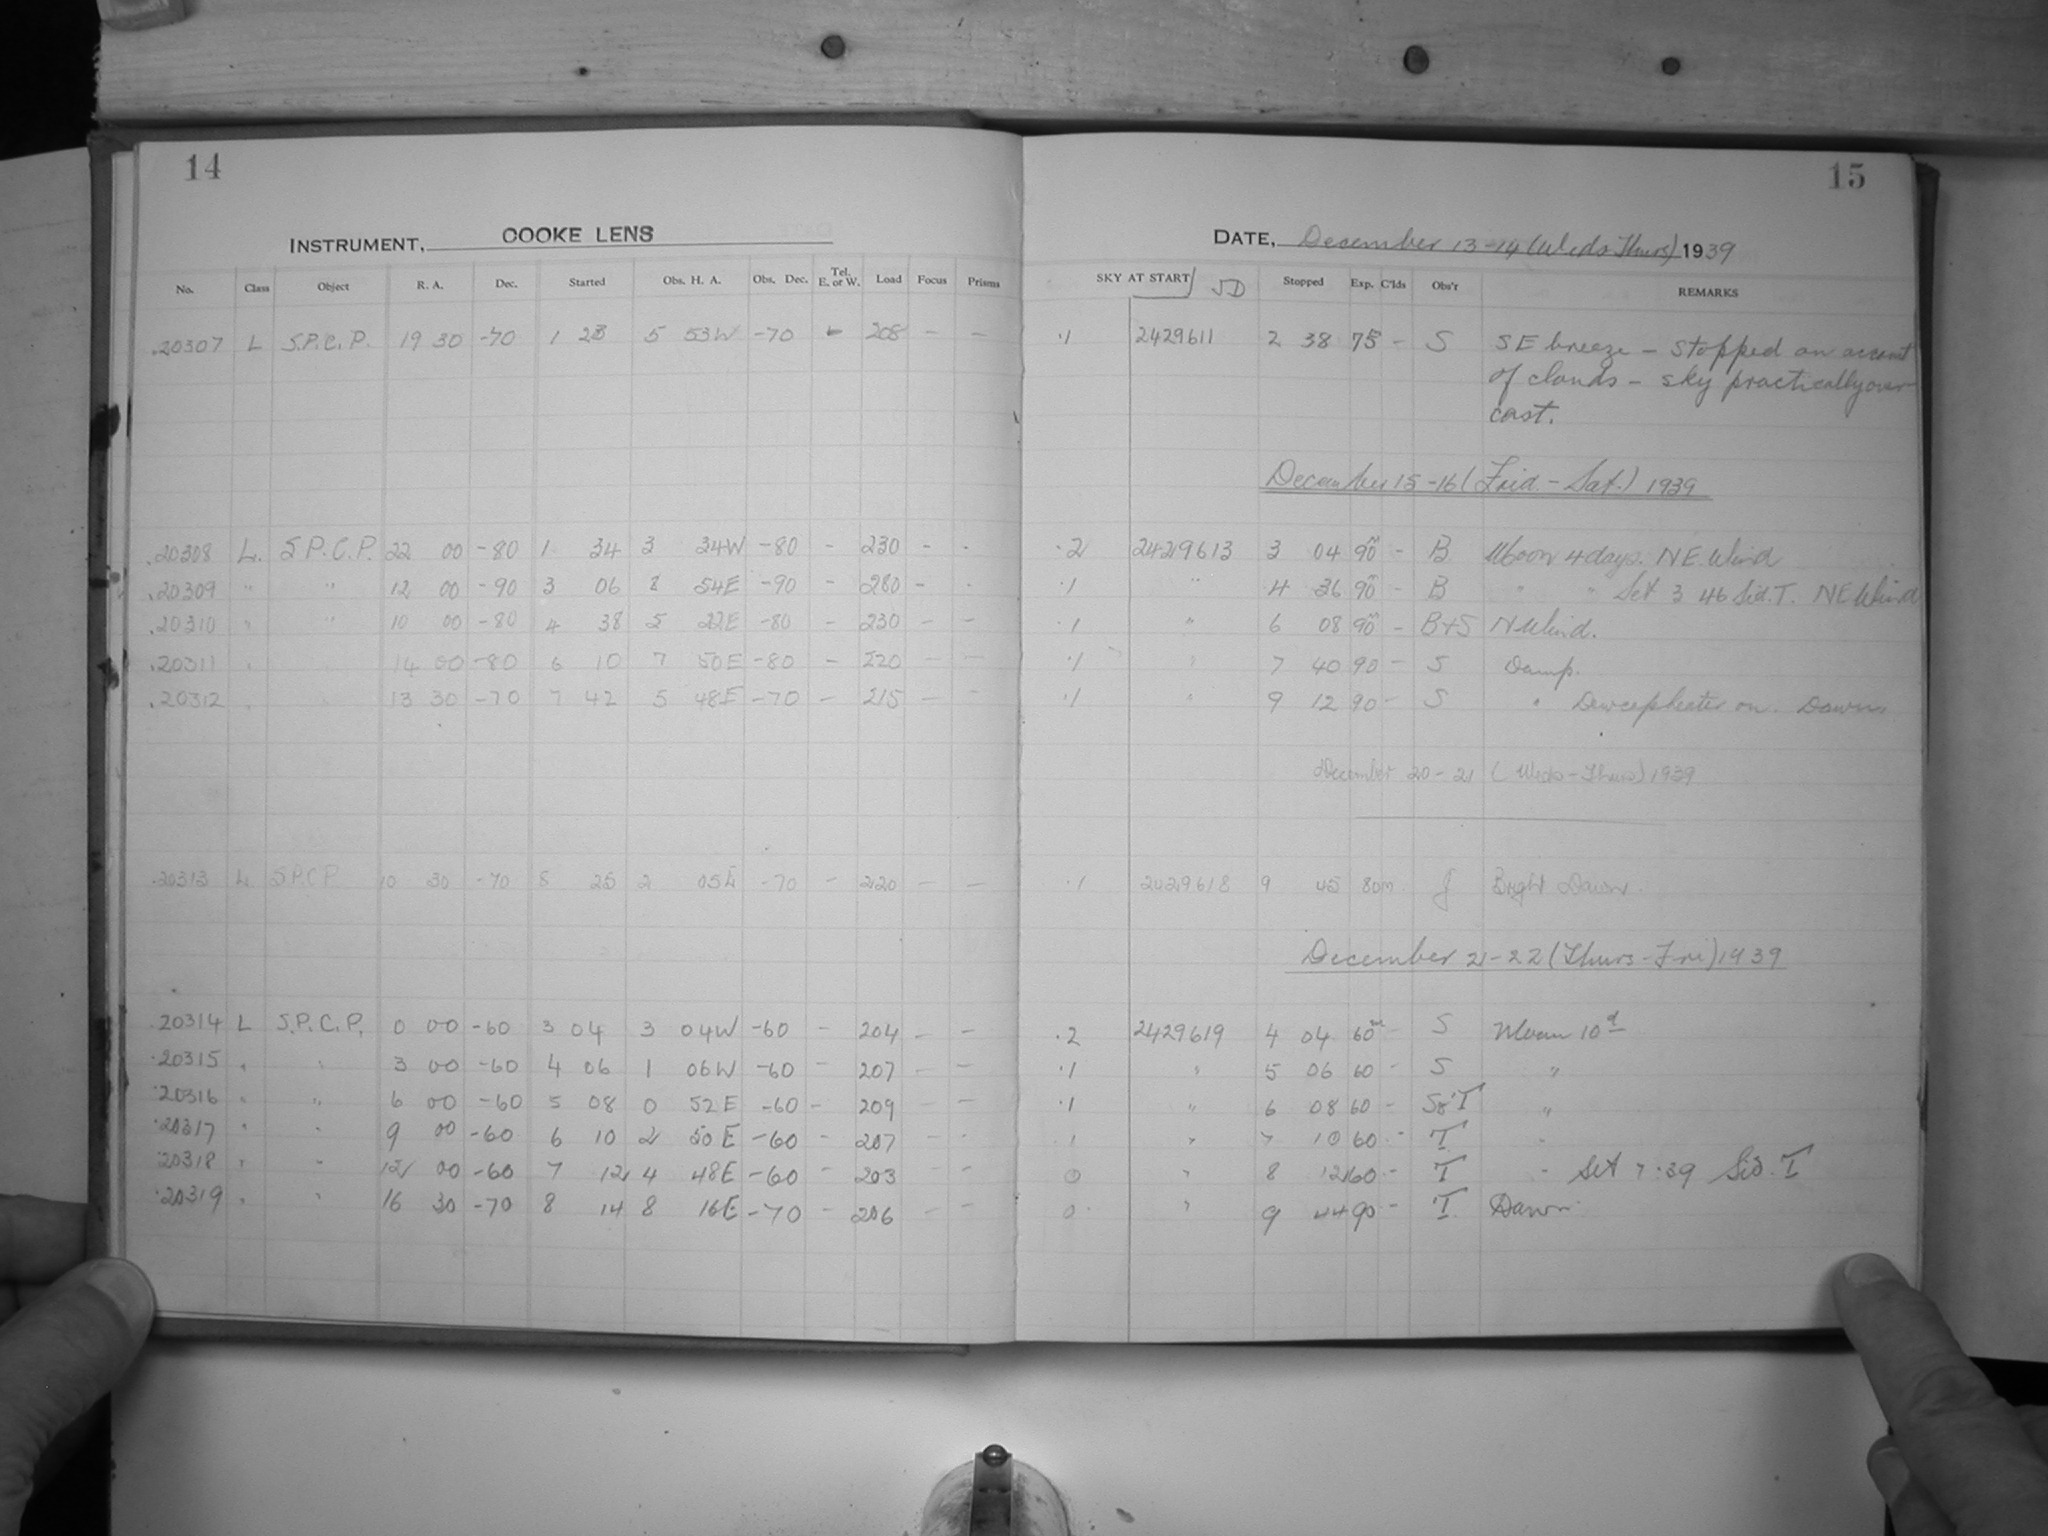 14
15
INSTRUMENT, COOKE LENS
DATE, December 13-14 (Weds Thurs) 1939
No. Class Object R. A. Dec. Started Obs. H. A. Obs. Dec. Tel. E. or W. Load Focus Prisms SKY AT START JD Stopped Exp. C'lds Obs'r REMARKS
.20307 L S.P.C.P. 19 30 -70 1 23 5 53W -70 - 208 - - .1 2429611 2 38 75 - S SE breeze - stopped on account
of clouds - sky practically over
cast.
December 15-16 (Frid. - Sat.) 1939
.20308 L. S.P.C.P. 22 00 -80 1 34 3 34W -80 - 230 - - .2 2429613 3 04 90m - B Moon 4 days. NE. Wind
.20309 " " 12 00 -90 3 06 8 54E -90 - 280 - - .1 " 4 36 90m - B " " Set 3 46 Sid. T. NE Wind
.20310 " " 10 00 -80 4 38 5 22E -80 - 230 - - .1 " 6 08 90m - B+S N Wind.
.20311 " 14 00 -80 6 10 7 50E -80 - 220 - - .1 " 7 40 90 - S Damp.
.20312 " 13 30 -70 7 42 5 48E -70 - 215 - - .1 " 9 12 90 - S " on. Dawn
December 20-21 (Weds-Thurs) 1939
.20313 L S.P.C.P. 10 30 -70 8 25 2 05E -70 - 220 - - .1 2429618 9 45 80m J Bright Dawn.
December 21-22 (Thurs-Fri) 1939
.20314 L S.P.C.P. 0 00 -60 3 04 3 04W -60 - 204 - - .2 2429619 4 04 60m - S Moon 10d
.20315 " " 3 00 -60 4 06 1 06W -60 - 207 - - .1 " 5 06 60 - S "
.20316 " " 6 00 -60 5 08 0 52E -60 - 209 - - .1 " 6 08 60 - S&T "
.20317 " " 9 00 -60 6 10 2 50E -60 - 207 - - .1 " 7 10 60 - T "
.20318 " " 12 00 -60 7 12 4 48E -60 - 203 0 " 8 12 60 - T " Set 7:39 Sid. T
.20319 " " 16 30 -70 8 14 8 16E -70 - 206 - - 0 " 9 44 90 - T Dawn